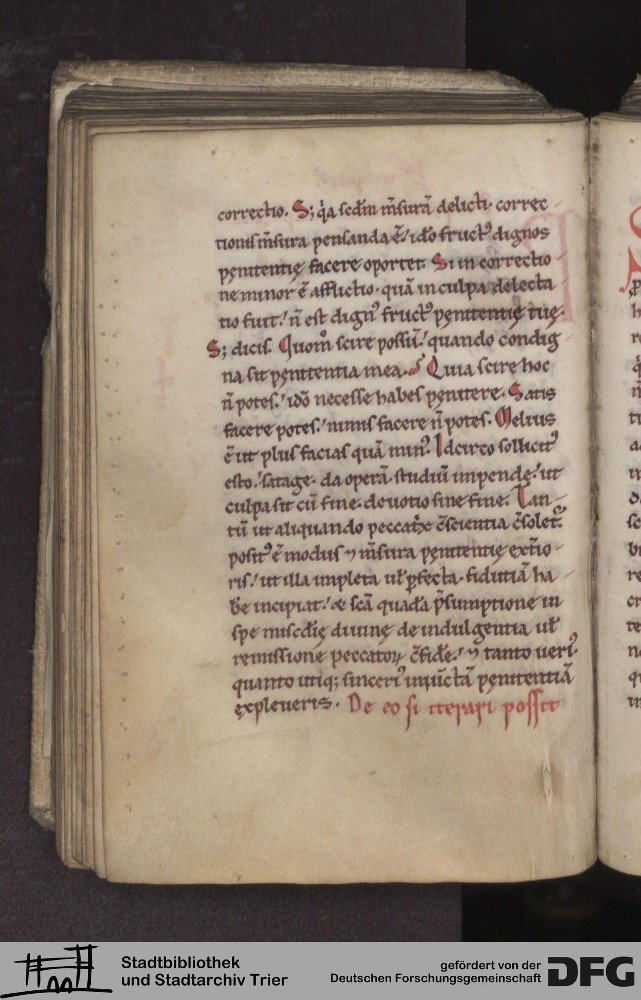 correctio. S; q̇a scdm̄ m̄surā delicti. correc-
tionis m̄sura pensanda ē. ido fruct᷒ dignos
pęnitentię facere oportet. Si in correctio-
ne minor ē afflictio. quā in culpa delecta
tio fuit. n̄ est dign᷒ fruct᷒ pęnitentię tuę.
S; dicis. Quom̊ scire possū. quando condig-
na sit pęnitentia mea. Quia scire hoc
n̄ potes. idō necesse habes pęnitere. Satis
facere potes. nimis facere n̄ potes. Melius
ē ut plus facias quā min᷒. Idcirco sollicit᷒
esto. satage. da operā. studiū impende. ut
culpa sit cū fine. deuotio sine fine. Tan-
tū ut aliquando peccatͥx c̄scientia c̄solet᷒.
posit᷒ ē modus ⁊ m̄sura pęnitentię ext̄io-
ris. ut illa impleta uł ꝑfecta. fidutiā ha-
b̄e incipiat. & scā quadā p̄sumptione in
spe miscd̄ię diuinę de indulgentia uł
remissione peccatoꝝ c̄fidē. ⁊ tanto ueri᷒.
quanto utiq; sinceri᷒ iniūctā pęnitentiā
expleueris. De eo si iterari possit
Stadtbibliothek
und Stadtarchiv Trier
gefördert von der
Deutschen Forschungsgemeinschaft
DFG